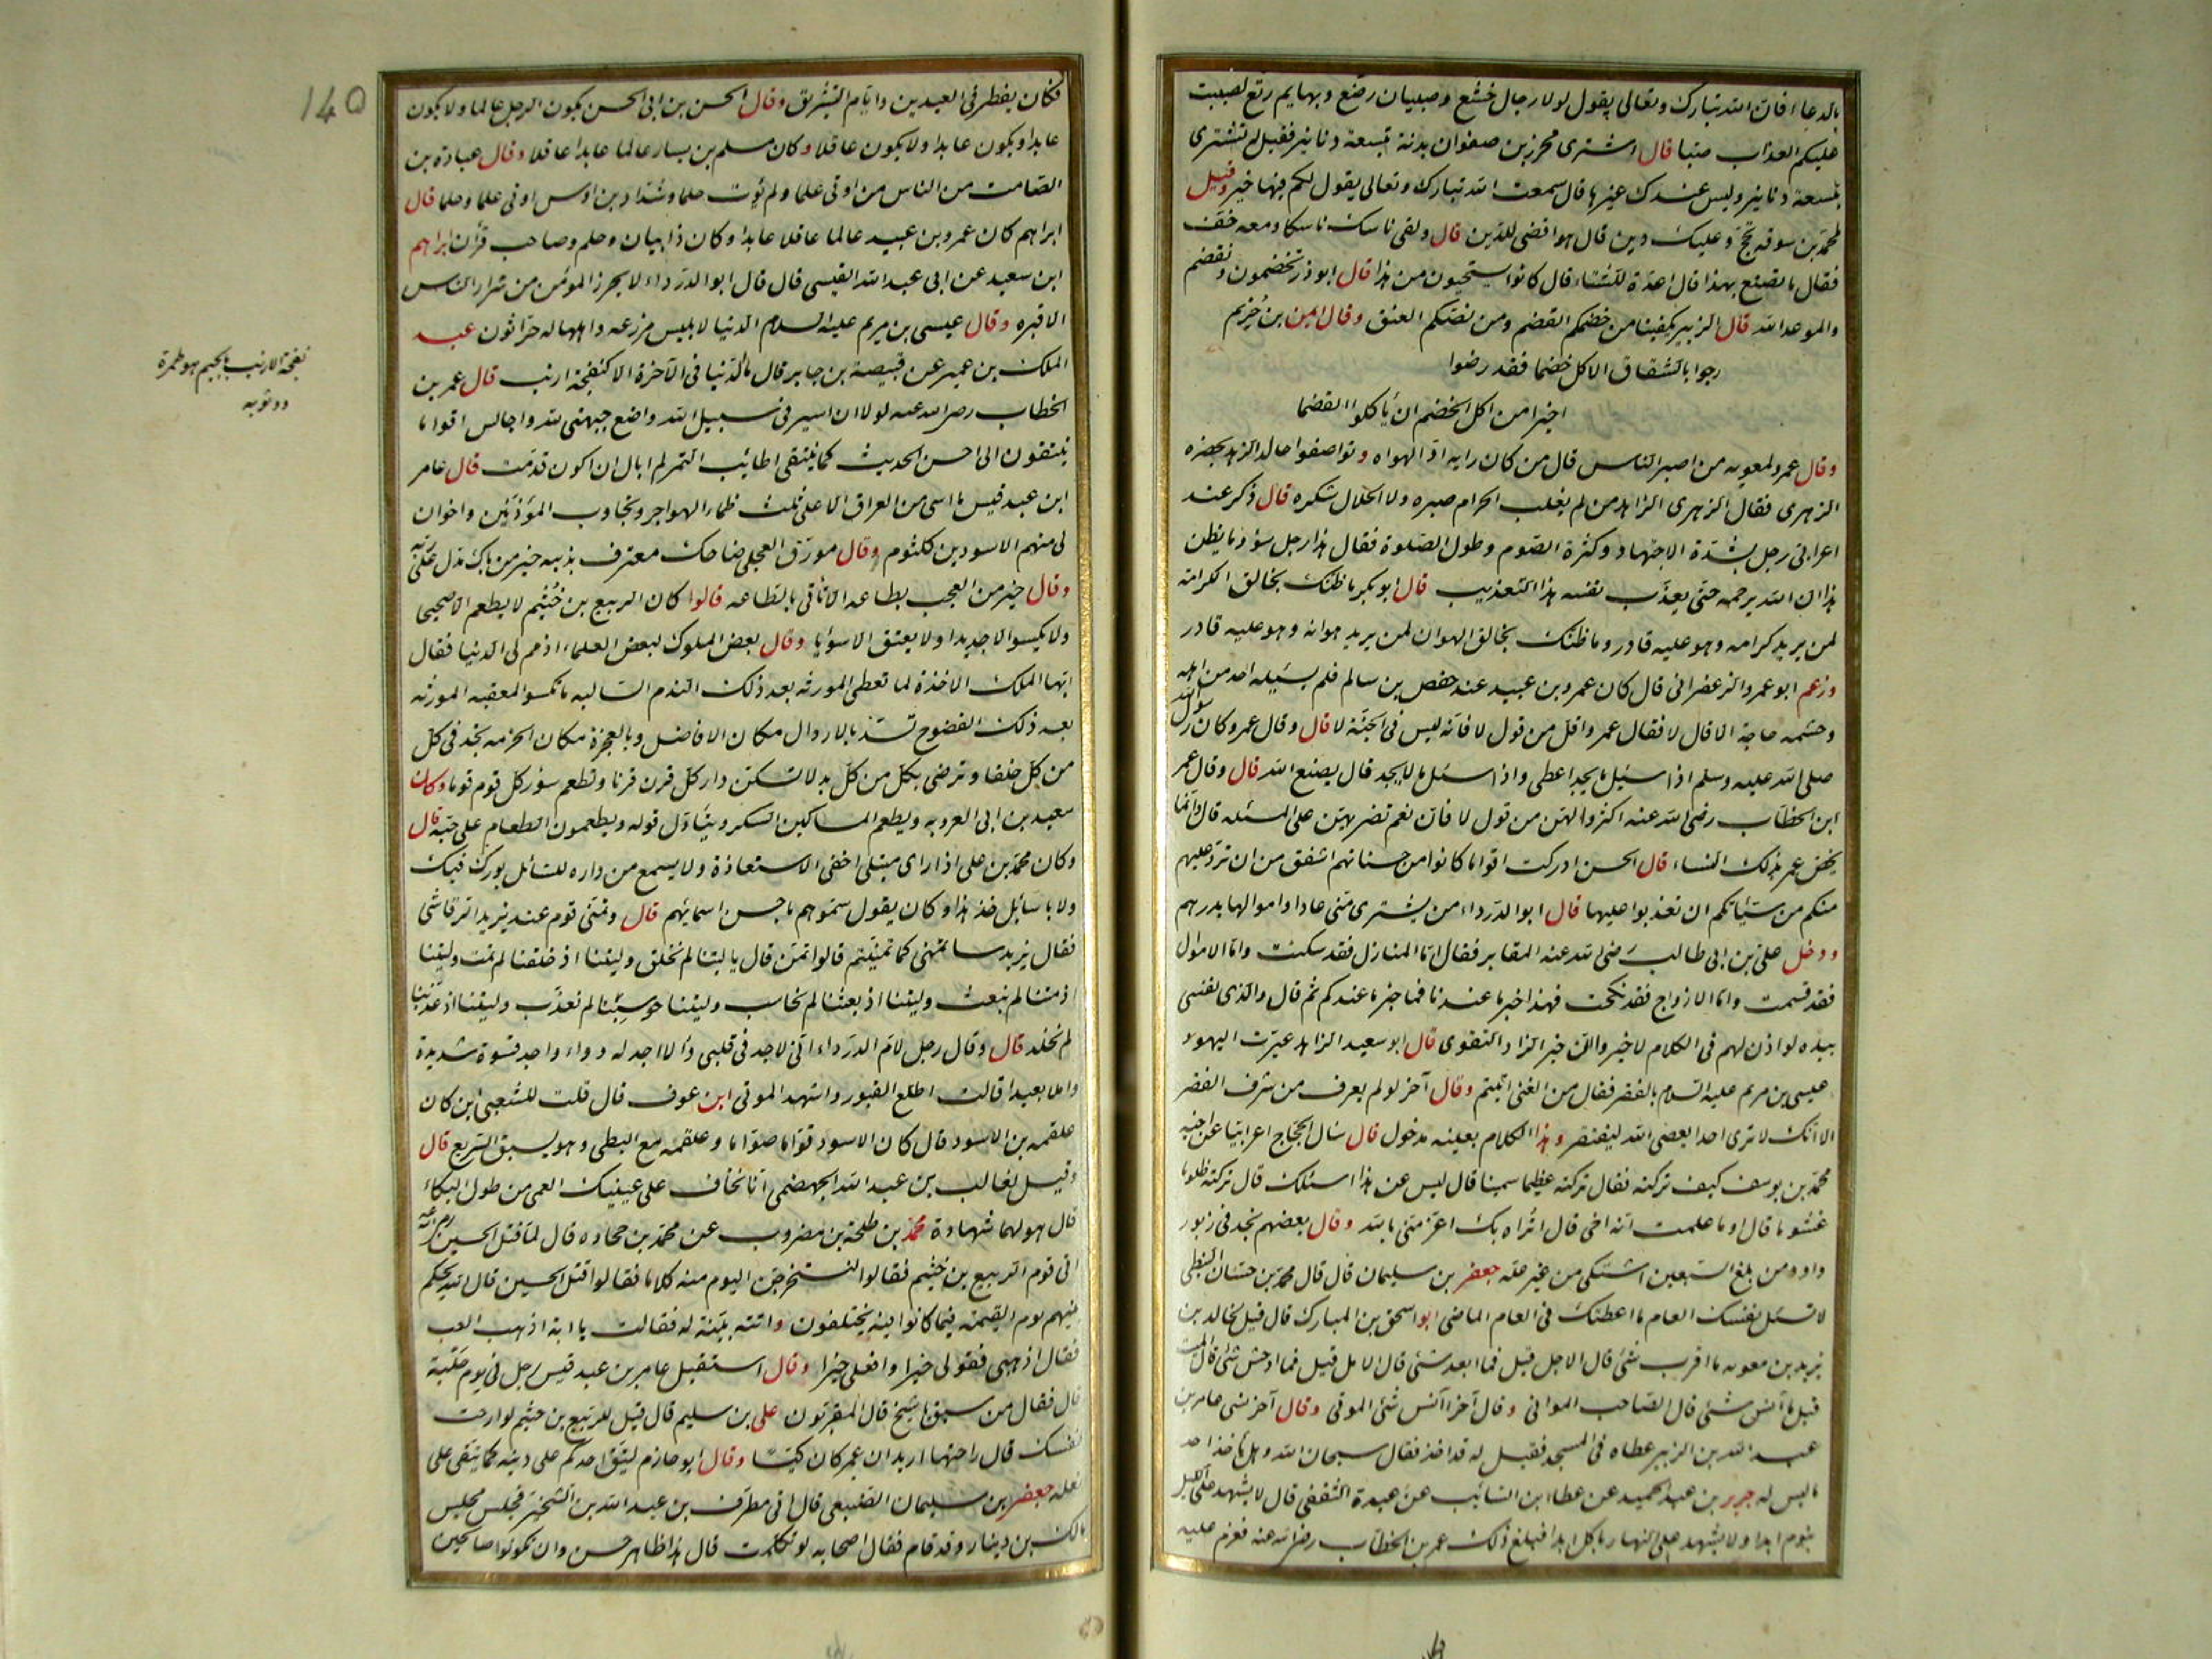 بالدعاء فان الله تبارك وتعالى يقول لولا رجال خشع وصبيان رضع وبهايم رتع لصببت
عليكم العذاب صبا قال اشترى محرز بن صفوان بدنة بتسعة دنانير فقيل له تشترى
بتسعة دنانير وليس عندك غيرها قال سمعت الله تبارك وتعالى يقول لكم فيها خير وقيل
لمحمد بن سوقه تحج وعليك دين قال هو اقضى للدين قال ولقى ناسك ناسكا ومعه خف
فقال ما تصنع بهذا قال عدة للشتاء قال كانوا يستحيون من هذا قال ابو ذر تخضمون ونقضم
والموعد الله قال الزبير يكفينا من خضمكم القضم ومن نصكم العنق وقال ايمن بن خريم
رجوا بالشقاق الاكل خضما فقد رضوا
اخيرا من اكل الخضم ان ياكلوا القضما
وقال عمرو لمعويه من اصبر الناس قال من كان رايه رادا لهواه وتواصفوا حال الزهد بحضره
الزهرى فقال الزهرى الزاهد من لم يغلب الحرام صبره ولا الحلال شكره قال ذكر عند
اعرابى رجل بشدة الاجتهاد وكثرة الصوم وطول الصلوة فقال هذا رجل سوء وما يظن
هذا ان الله يرحمه حتى يعذب نفسه هذا التعذيب قال ابو بكر ما ظنك بخالق الكرامة
لمن يريد كرامه وهو عليه قادر وما ظنك بخالق الهوان لمن يريد هوانه وهو عليه قادر
وزعم ابو عمرو الزعفرانى قال كان عمرو بن عبيد عند حفص بن سالم فلم يسئله احد من اهله
وحشمه حاجة الا قال لا فقال عمرو اقل من قول لا فانه ليس فى الجنة لا قال وقال عمرو كان رسول الله
صلى الله عليه وسلم اذا سئل ما يجد اعطى واذا سئل ما لا يجد قال يصنع الله قال وقال عمر
ابن الخطاب رضى الله عنه اكثروا لهن من قول لا فان نعم تضريهن على المسئله قال وانما
يخص عمر بذلك النساء قال الحسن ادركت اقواما كانوا من حسناتهم اشفق من ان ترد عليهم
منكم من سيئاتكم ان تعذبوا عليها قال ابو الدرداء من يشترى منى عادا واموالها بدرهم
ودخل على بن ابى طالب رضى الله عنه المقابر فقال اما المنازل فقد سكنت واما الاموال
فقد قسمت واما الازواج فقد نكحت فهذا خبر ما عندنا فما خبر ما عندكم ثم قال والذى نفسى
بيده لو اذن لهم فى الكلام لاخبروا ان خير الزاد التقوى قال ابو سعيد الزاهد عيرت اليهود
عيسى بن مريم عليه السلام بالفقر فقال من الغنى اتيتم وقال آخر لو لم يعرف من شرف الفقر
الا انك لا ترى احدا يعصى الله ليفتقر وهذا الكلام بعينه مدخول قال سال الحجاج اعرابيا عن اخيه
محمد بن يوسف كيف تركته فقال تركته عظيما سمينا قال ليس عن هذا اسئلك قال تركته ظلوما
غشوما قال اوما علمت انه اخى قال اتراه بك اعز منى بالله وقال بعضهم نجد فى زبور
داود من بلغ السبعين اشتكى من غير علة جعفر بن سليمان قال قال محمد بن حسان النبطى
لا تسئل نفسك العام ما اعطتك فى العام الماضى ابو اسحق بن المبارك قال قيل لخالد بن
يزيد بن معويه ما اقرب شئ قال الاجل قيل فما ابعد شئ قال الامل قيل فما اوحش شئ قال الميت
قيل فما آنس شئ قال الصاحب المواتى وقال آخر آنس شئ الموتى وقال آخر نسى عامر بن
عبد الله بن الزبير عطاه فى المسجد فقيل له قد اخذ فقال سبحان الله وهل ياخذ احد
ما ليس له جرير بن عبد الحميد عن عطاء ابن السائب عن عبيدة الثقفى قال لا يشهد على الليل
بنوم ابدا ولا يشهد على النهار باكل ابدا فبلغ ذلك عمر بن الخطاب رضى الله عنه فعزم عليه
140
فكان يفطر فى العيدين وايام التشريق وقال الحسن بن ابى الحسن يكون الرجل عالما ولا يكون
عابدا ويكون عابدا ولا يكون عاقلا وكان مسلم بن يسار عالما عابدا عاقلا وقال عبادة بن
الصامت من الناس من اوتى علما ولم يؤت حلما وشداد بن اوس اوتى علما وحلما قال
ابراهيم كان عمرو بن عبيد عالما عاقلا عابدا وكان ذا بيان وحلم وصاحب قرآن ابراهيم
ابن سعيد عن ابى عبد الله القيسى قال قال ابو الدرداء لا يحرز المؤمن من شرار الناس
الا قبره وقال عيسى بن مريم عليه السلام الدنيا لابليس مزرعه واهلها له حراثون عبد
الملك بن عمير عن قبيصة بن جابر قال ما الدنيا فى الآخرة الا كنفجة ارنب قال عمر بن
الخطاب رضى الله عنه لولا ان اسير فى سبيل الله واضع جبهتى لله واجالس اقواما
ينتقون الى احسن الحديث كما ينتقى اطائب التمر لم ابال ان اكون قدمت قال عامر
ابن عبد قيس ما اسى من العراق الا على ثلث ظماء الهواجر وتجاوب المؤذنين واخوان
لى منهم الاسود بن كلثوم وقال مورق العجلى ضاحك معترف بذنبه خير من باك مدل على ربه
وقال خير من العجب بطاعه الا تاتى بالطاعه قالوا كان الربيع بن خثيم لا يطعم الا صحيحا
ولا يكسو الا جديدا ولا يعتق الا سويا وقال بعض الملوك لبعض العلماء اذمم لى الدنيا فقال
ايها الملك الاخذة لما تعطى المورثه بعد ذلك الندم السالبه ما تكسو المعقبه المورثه
بعد ذلك الفضوح تسد بالاراذال مكان الافاضل وبالعجزة مكان الحزمه تجد فى كل
من كل خلفا وترضى بكل من كل بدلا تسكن دار كل قرن قرنا وتطعم سؤر كل قوم قوما وكان
سعيد بن ابى العروبه ويطعم المساكين السكر ويتاول قوله ويطعمون الطعام على حبه قال
وكان محمد بن على اذا راى مبتلى اخفى الاستعاذة ولا يسمع من داره للسائل بورك فيك
ولا يا سائل خذ هذا وكان يقول سموهم باحسن اسمائهم قال وتمنى قوم عند يزيد الرقاشى
فقال يزيد ساتمنى كما تمنيتم قالوا تمن قال يا ليتنا لم نخلق وليتنا اذ خلقنا لم نمت وليتنا
اذ متنا لم نبعث وليتنا اذ بعثنا لم نحاسب وليتنا حوسبنا لم نعذب وليتنا اذ عذبنا
لم نخلد قال وقال رجل لام الدرداء انى لاجد فى قلبى داء لا اجد له دواء واجد قسوة شديدة
واملا بعيدا قالت اطلع القبور واشهد الموتى ابن عوف قال قلت للشعبى اين كان
علقمه بن الاسود قال كان الاسود قواما صواما وعلقمه مع البطى وهو يسبق السريع قال
وقيل لغالب بن عبد الله الجهضمى انا نخاف على عينيك العمى من طول البكاء
قال هو لهما شهادة محمد بن طلحة بن مصروب عن محمد بن جحاده قال لما قتل الحسين رحمه الله
اتى قوم الربيع بن خثيم فقالوا لنستخرجن اليوم منه كلاما فقالوا قتل الحسين قال الله يحكم
بينهم يوم القيمة فيما كانوا فيه يختلفون واتته بنية له فقالت يا ابة اذهب العب
فقال اذهبى فقولى خيرا وافعلى خيرا وقال استقبل عامر بن عبد قيس رجل فى يوم حلبة
قال فقال من سبق يا شيخ قال المقربون على بن سليم قال قيل للربيع بن خثيم لو ارحت
نفسك قال راحتها اريد ان عمر كان كيسا وقال ابو حازم ليتق احدكم على دينه كما يتقى على
نعله جعفر بن سليمان الضبعى قال اتى مطرف بن عبد الله بن الشخير فجلس مجلس
مالك بن دينار وقد قام فقال اصحابه لو تكلمت قال هذا ظاهر حسن وان تكونوا صالحين
نفجة الارنب بالجيم هو طمرة